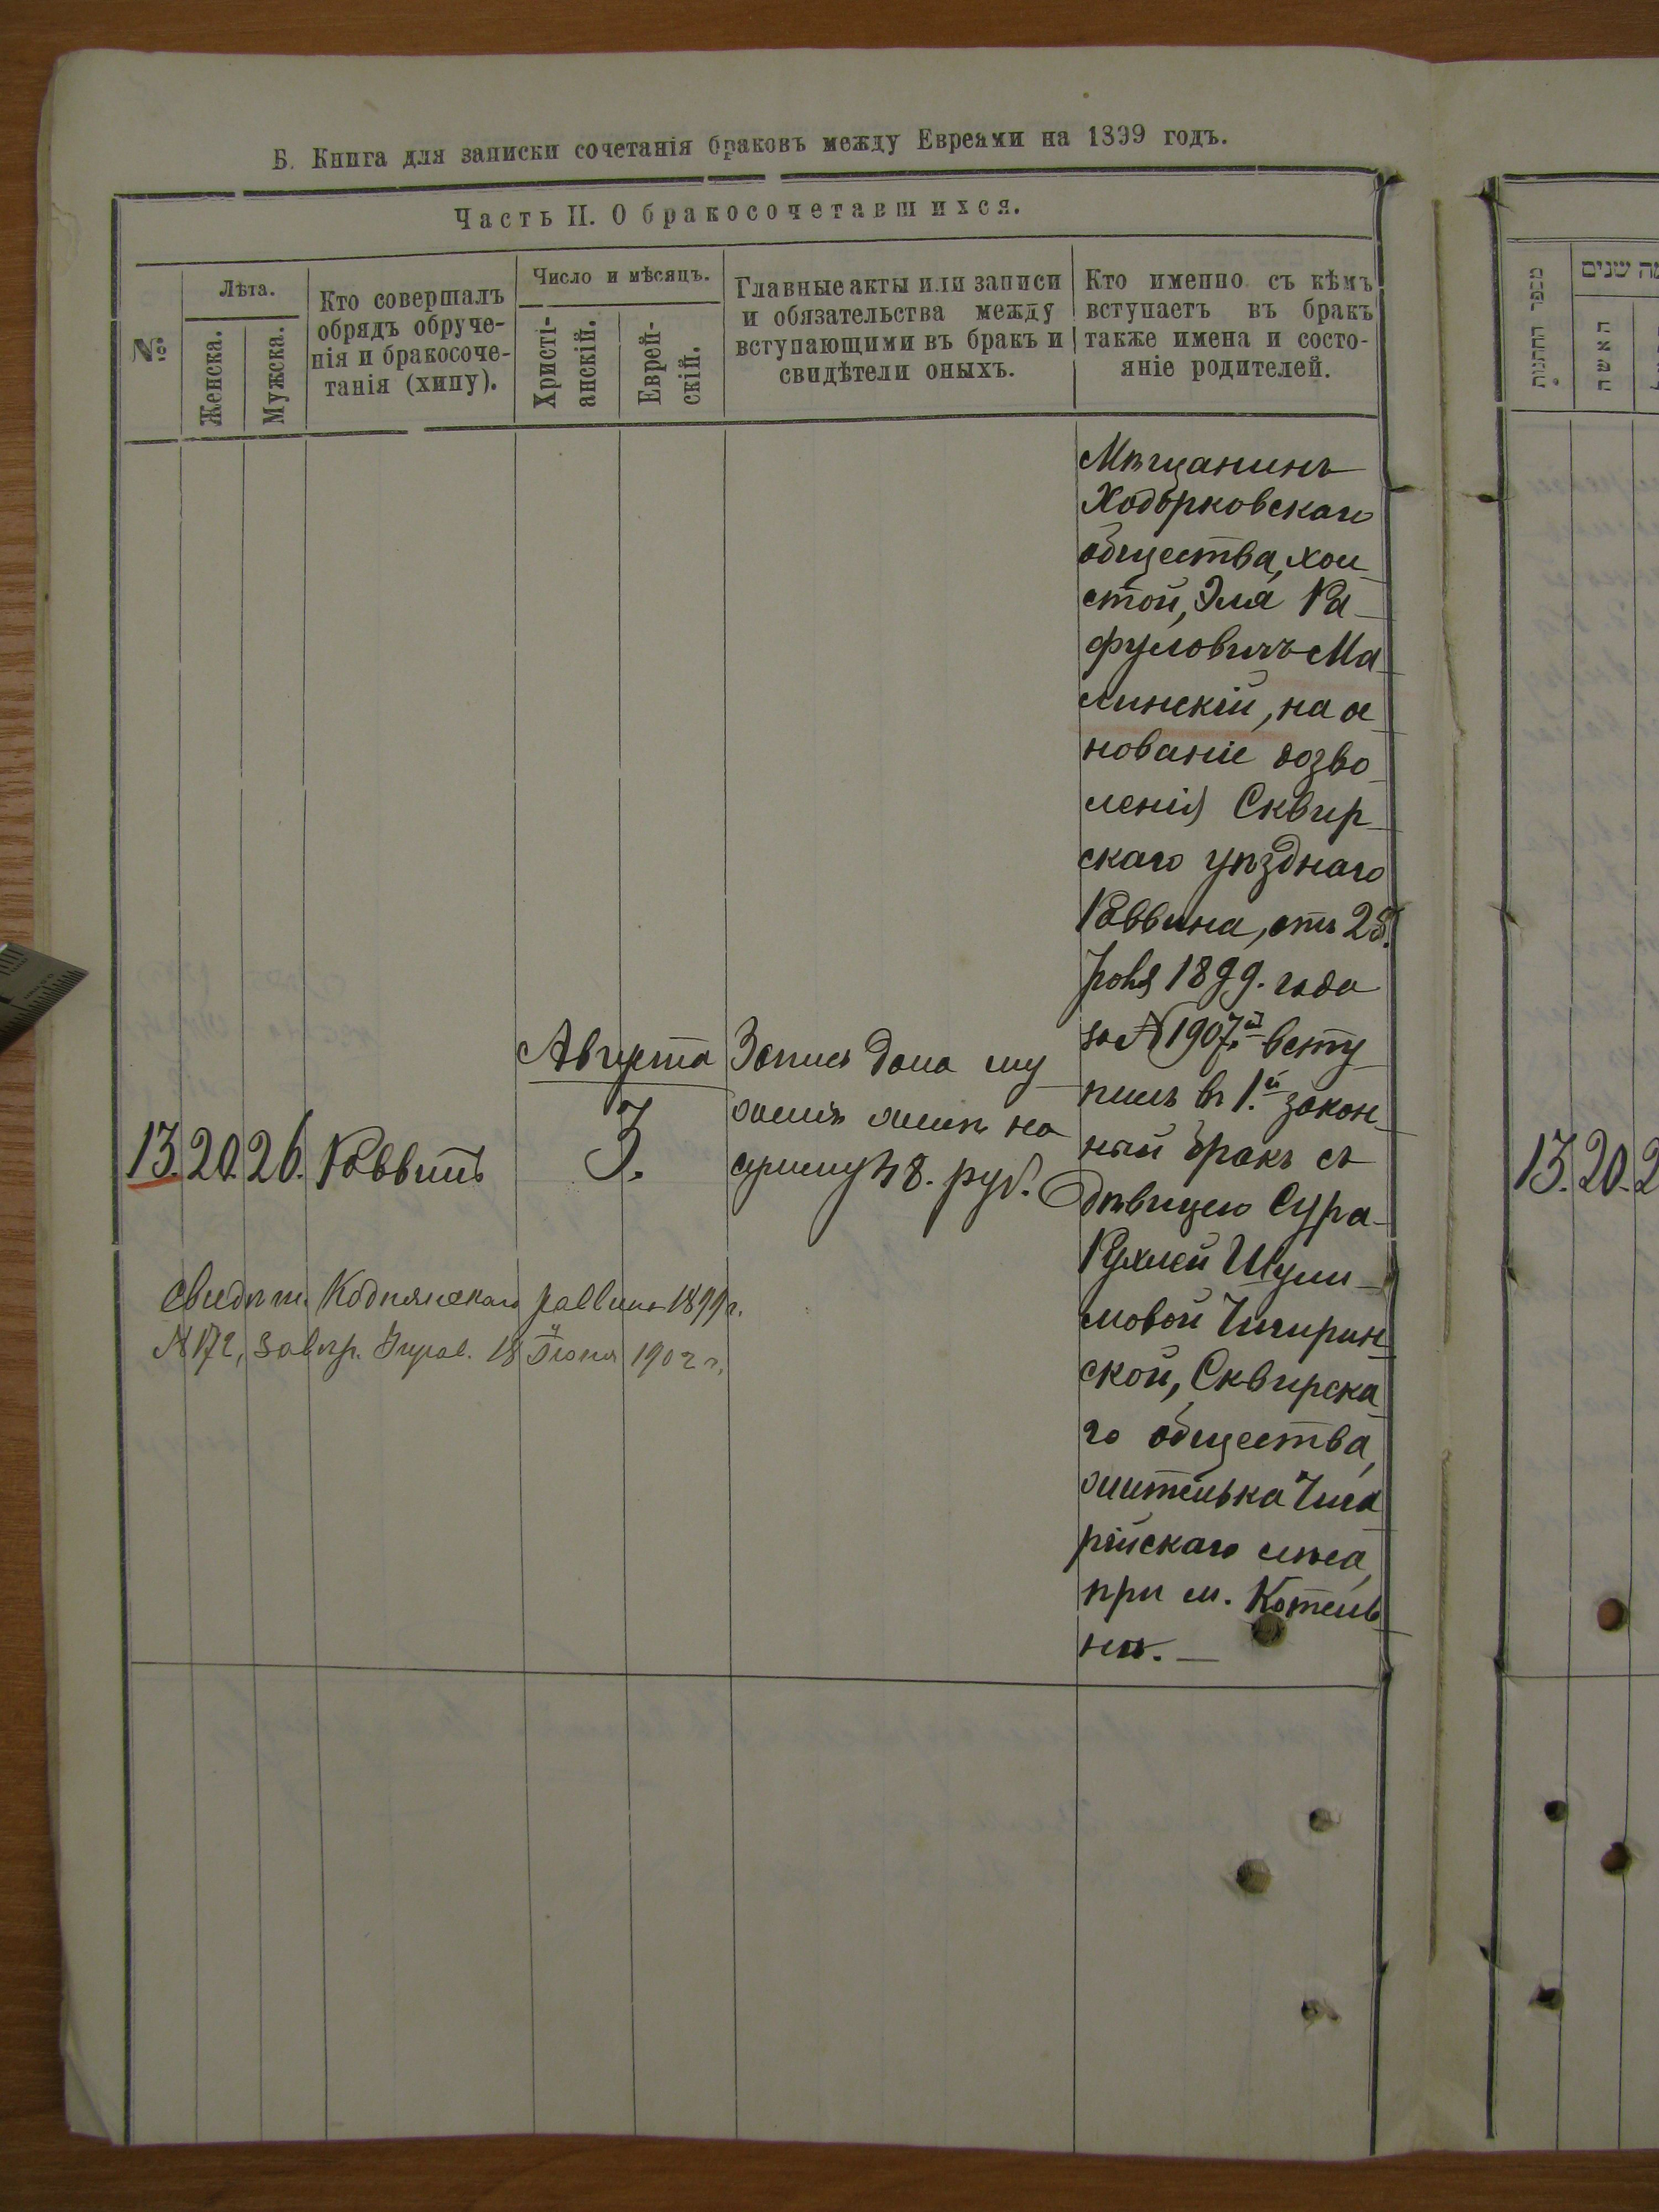 Б. Книга для записки сочетанія браковъ между Евреями на 1899 годъ.
Часть II. О бракосочетавшихся.
№
Лѣта.
Женска.
Мужска.
Кто совершалъ
обрядъ обруче-
нія и бракосоче-
танія (хипу).
Число и мѣсяцъ.
Христі-
анскій.
Еврей-
скій.
Главные акты или записи
и обязательства между
вступающими въ бракъ и
свидѣтели оныхъ.
Кто именно съ кѣмъ
вступаетъ въ бракъ
также имена и состо-
яніе родителей.
13. 20. 26. Раввинъ
Августа
3.
Запись дана му
жемъ женѣ на
сумму 48. руб.
Мѣщанинъ
Ходорковскаго
общества, хол
стой, Эля Ра-
фуловичъ Ма
линскій, на ос
нованіе дозво
ленія Сквир-
скаго уѣзднаго
Раввина, отъ 28.
1899. года
за № 1907.й всту
пилъ въ 1.й закон
ный бракъ съ
дѣвицею Сура-
Рухлей Шули-
мовой Чигирин
ской, Сквирска
го общества,
жителька
при м. Котель
нѣ. —
Свидѣт. раввина 1899 г.
№ 172, Управ. 18 Іюня 1902 г.
מספר החתונות
האשה
13. 20. 2